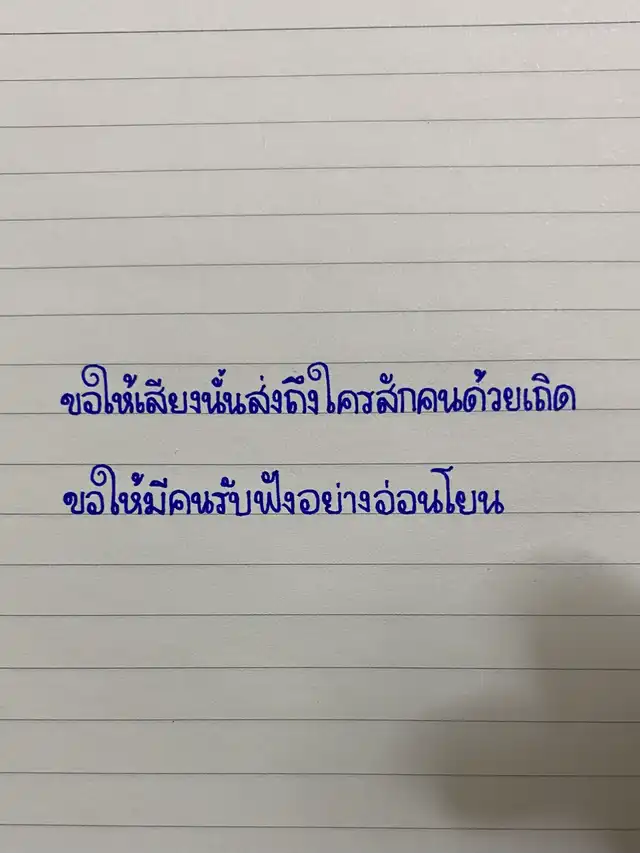 ขอให้เสียงนั้นส่งถึงใครสักคนด้วยเถิด
ขอให้มีคนรับฟังอย่างอ่อนโยน